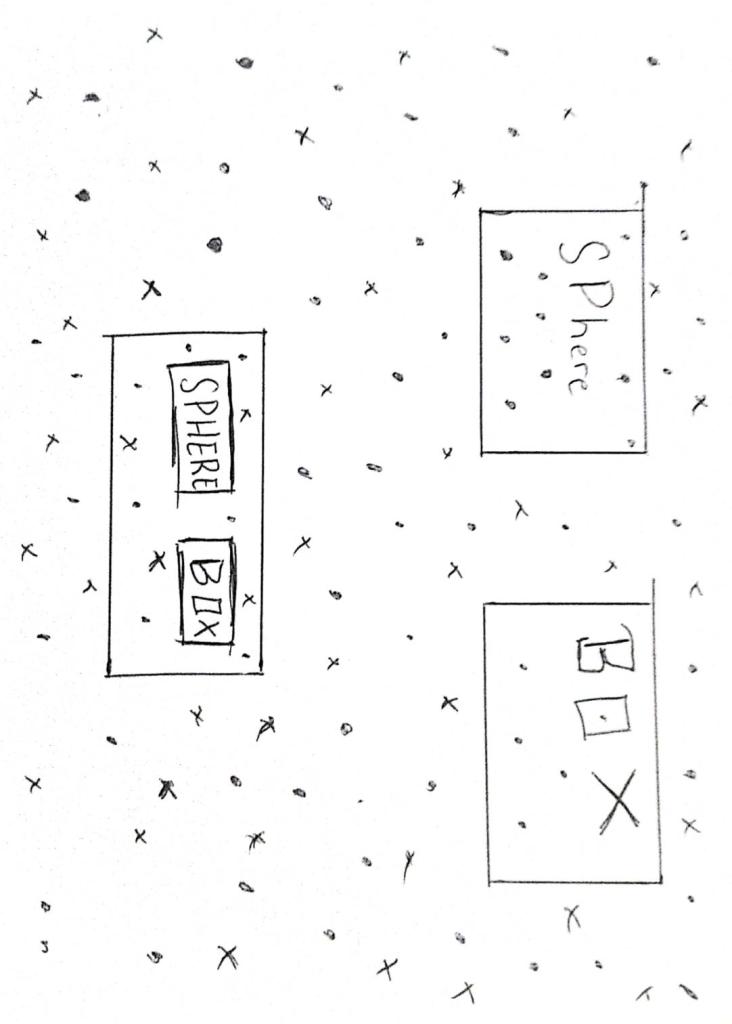 SPhere
BOX
SPHERE BOX